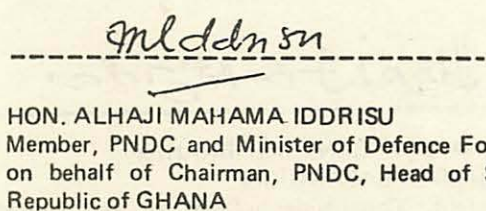 HON. ALHAJI MAHAMA IDDRISU
Member, PNDC and Minister of Defence Fo
on behalf of Chairman, PNDC, Head of S
Republic of GHANA